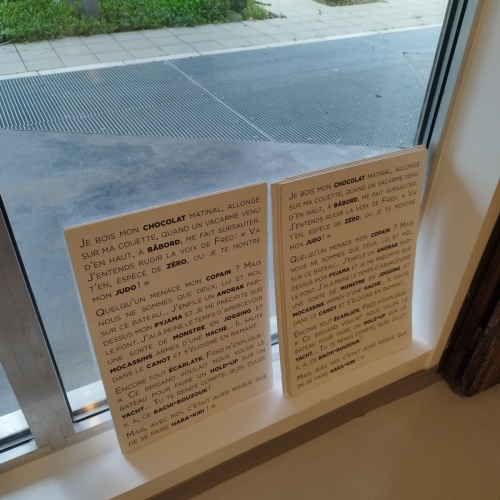 Je bois mon CHOCOLAT matinal, allongé
sur ma couette, quand un vacarme venu
d'en haut, à BÂBORD, me fait sursauter.
J'entends rugir la voix de Fred : « Va
t'en, espèce de ZÉRO, ou je te montre
mon JUDO ! »
Quelqu'un menace mon COPAIN ? Mais
nous ne sommes que deux, lui et moi,
sur ce bateau... J'enfile un ANORAK par-
dessus mon PYJAMA et je me précipite sur
le pont. J'ai à peine le temps d'apercevoir
une sorte de MONSTRE en JOGGING et
MOCASSINS armés d'une HACHE. Il saute
dans le CANOT et s'éloigne en ramant !
Encore tout ÉCARLATE, Fred m'explique :
« Ce brigand voulait nous voler le
bateau pour faire un HOLD-UP sur un
YACHT... Tu te rends compte, quel culot
il a, ce BACHI-BOUZOUK !
Mais, avec moi, c'était aussi risqué que
de se faire HARA-KIRI ! »
Je bois mon CHOCOLAT matinal, allongé
sur ma couette, quand un vacarme venu
d'en haut, à BÂBORD, me fait sursauter.
J'entends rugir la voix de Fred : « Va
t'en, espèce de ZÉRO, ou je te montre
mon JUDO ! »
Quelqu'un menace mon COPAIN ? Mais
nous ne sommes que deux, lui et moi,
sur ce bateau... J'enfile un ANORAK par-
dessus mon PYJAMA et je me précipite sur
le pont. J'ai à peine le temps d'apercevoir
une sorte de MONSTRE en JOGGING et
MOCASSINS armés d'une HACHE. Il saute
dans le CANOT et s'éloigne en ramant !
Encore tout ÉCARLATE, Fred m'explique :
« Ce brigand voulait nous voler le
bateau pour faire un HOLD-UP sur un
YACHT... Tu te rends compte, quel culot
il a, ce BACHI-BOUZOUK !
Mais, avec moi, c'était aussi risqué que
de se faire HARA-KIRI ! »